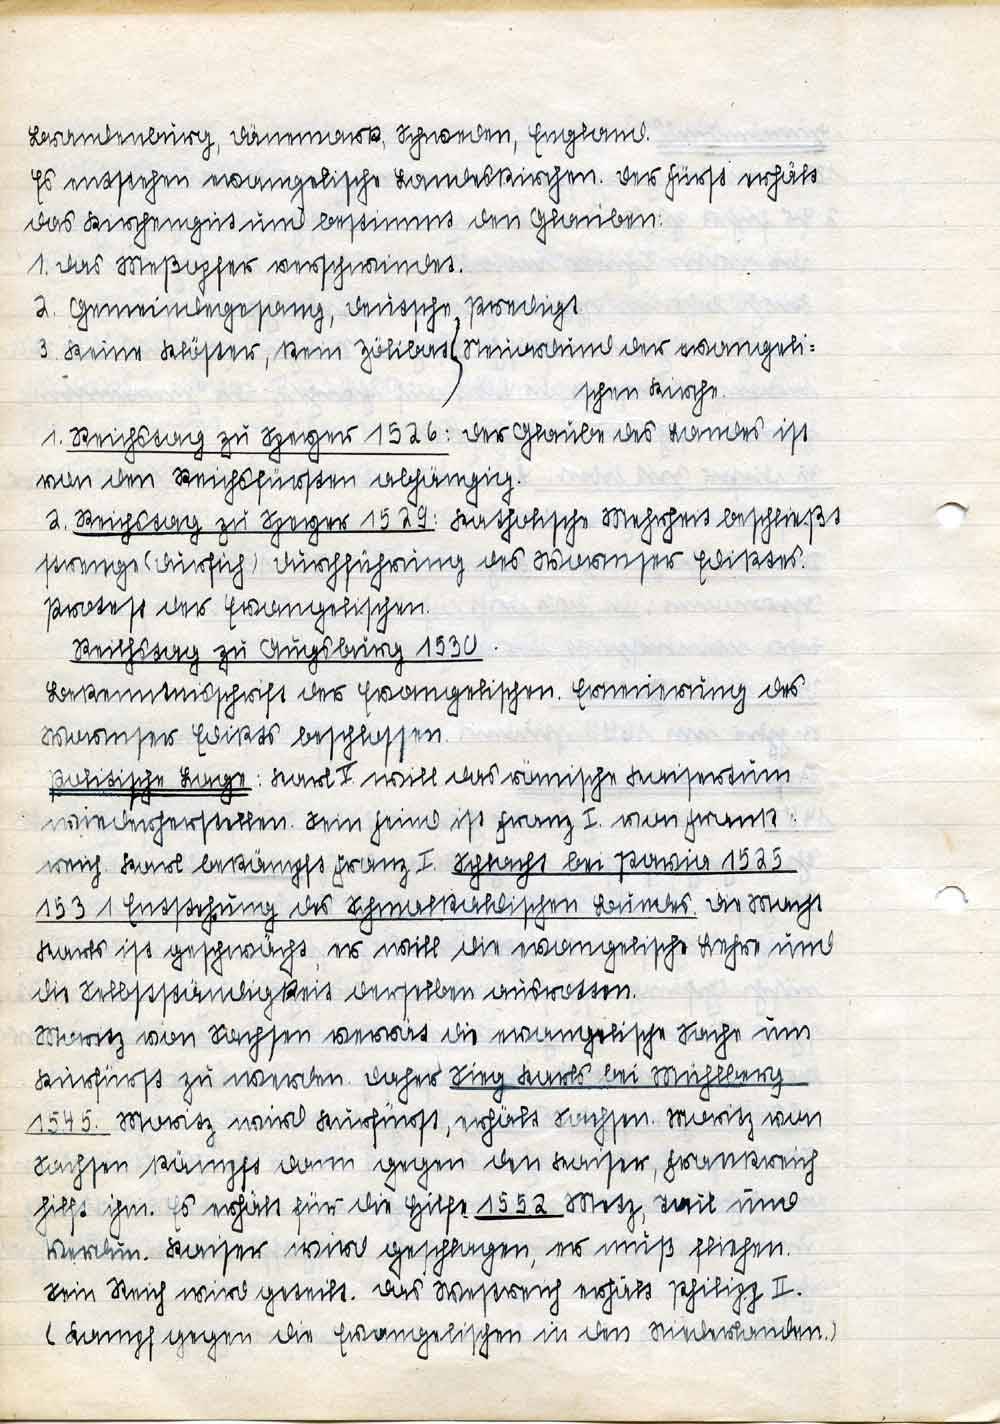 Brandenburg, Dänemark, Schweden, England.
Es entstehen evangelische Landeskirchen. Der Fürst erhält
das Kirchengut und bestimmt den Glauben:
1. Das Meßopfer verschwindet.
2. Gemeindegesang, deutsche Predigt
3. Keine Klöster, kein Zölibat } Neuordnung der evangeli=
schen Kirche.
1. Reichstag zu Speyer 1526: Der Glaube des Landes ist
von den Reichsfürsten abhängig.
2. Reichstag zu Speyer 1529: Katholische Mehrheit beschließt
strenge () Durchführung des Wormser Ediktes.
Protest der Evangelischen.
Reichstag zu Augsburg 1530.
Bekenntnisschrift der Evangelischen. Erneuerung des
Wormser Edikts beschlossen.
Politische Lage: Karl V. will das römische Kaisertum
wiederherstellen. Sein Feind ist Franz I. von Frank=
reich. Karl bekämpft Franz I. Schlacht bei Pavia 1525
1531 Entstehung des Schmalkaldischen Bundes. Die Macht
Karls ist geschwächt, er will die evangelische Lehre und
die Selbstständigkeit derselben ausrotten.
Moritz von Sachsen verrät die evangelische Sache um
Kurfürst zu werden. Daher Sieg Karls bei Mühlberg
1545. Moritz wird Kurfürst, erhält Sachsen. Moritz von
Sachsen kämpft dann gegen den Kaiser, Frankreich
hilft ihm. Es erhält für die Hilfe 1552 Metz, Tull und
Verdun. Kaiser wird geschlagen, er muß fliehen.
Sein Reich wird geteilt. Das Westreich erhält Philipp II.
(Kampf gegen die Evangelischen in den Niederlanden.)